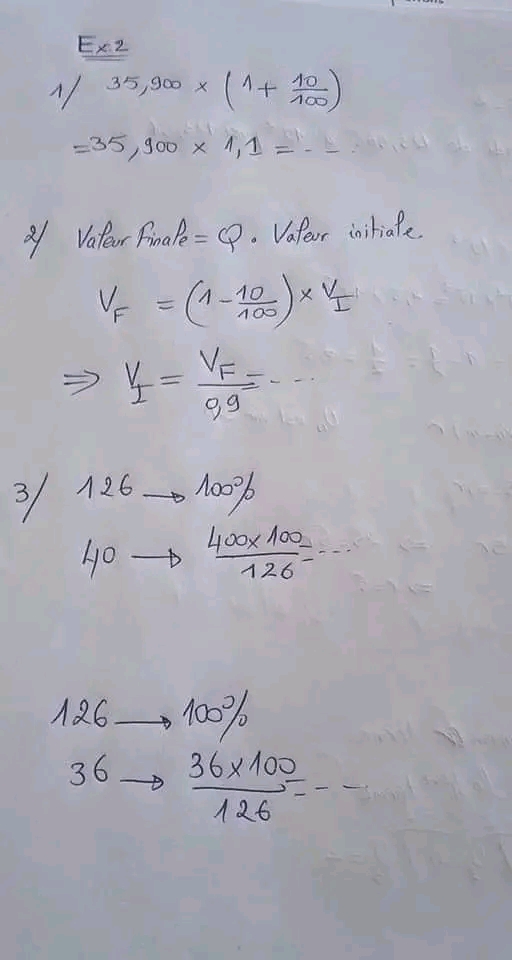 Ex.2
1/ 35,900 × (1 + 10/100)
=35,900 × 1,1 = - - -
2/ Valeur Finale = Q . Valeur initiale.
V_F = (1 - 10/100) × V_I
⇒ V_I = V_F/0,9 = - ...
3/ 126 → 100%
40 → 400×100/126 = - ...
126 → 100%
36 → 36×100/126 = - - -